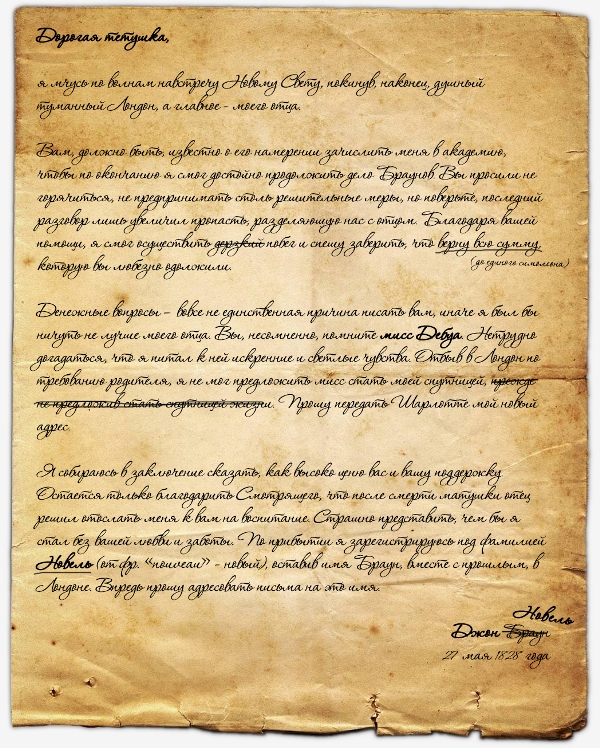 Дорогая тетушка,
я мчусь по волнам навстречу Новому Свету, покинув, наконец, душный
туманный Лондон, а главное - моего отца.
Вам, должно быть, известно о его намерении зачислить меня в академию,
чтобы по окончанию я смог достойно продолжить дело Браунов. Вы просили не
горячиться, не предпринимать столь решительные меры, но поверьте, последний
разговор лишь увеличил пропасть, разделяющую нас с отцом. Благодаря вашей
помощи, я смог осуществить дерзкий побег и спешу заверить, что верну всю сумму,
(до единого симолиона)
которую вы любезно одолжили.
Денежные вопросы – вовсе не единственная причина писать вам, иначе я был бы
ничуть не лучше моего отца. Вы, несомненно, помните мисс Дебуа. Нетрудно
догадаться, что я питал к ней искренние и светлые чувства. Отбыв в Лондон по
требованию родителя, я не мог предложить мисс стать моей спутницей, прежде
не предложив стать спутницей жизни. Прошу передать Шарлотте мой новый
адрес.
Я собираюсь в заключение сказать, как высоко ценю вас и вашу поддержку
Остается только благодарить Смотрящего, что после смерти матушки отец
решил отослать меня к вам на воспитание. Страшно представить, чем бы я
стал без вашей любви и заботы. По прибытии я зарегистрируюсь под фамилией
Новель (от фр. «nouveau» - новый), оставив имя Браун, вместе с прошлым, в
Лондоне. Впредь прошу адресовать письма на это имя.
Новель
Джон Браун
27 мая 1828 года